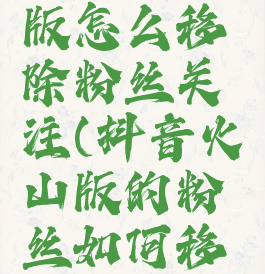 版怎么移
除粉丝关
注(抖音火
山版的粉
丝如何移